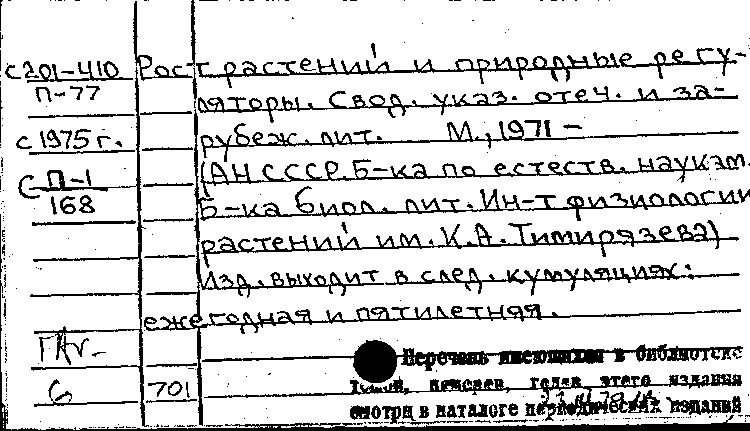 с201-410 Рост растений и природные регу-
П-77 ляторы. Свод. указ. отеч. и за-
с 1975 г. рубеж. лит. М., 1971 -
С П-1 (АН СССР. Б-ка по естеств. наукам.
168 Б-ка биол. лит. Ин-т физиологии
растений им. К.А. Тимирязева)
Изд. выходит в след. кумуляциях:
ежегодная и пятилетняя.
Перечень имеющихся в библиотеке
6 701 томов, выпусков, годов этого издания
смотри в каталоге периодических изданий